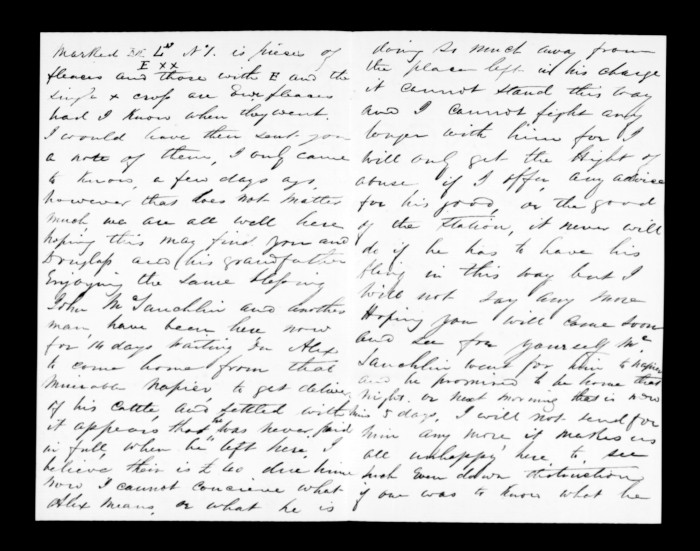 marked BR Lx No 1. is pieces of
E XX
fleeces and those with E and the
single x crop are Ewe fleeces
had I know when they went.
I would have then sent you
a note of them, I only came
to know, a few days ago,
however that does not matter
much, we are all well here
hoping this may find you and
Douglas and his grandfather
Enjoying the same blessing
John McLauchlin and another
man, have been here now
for 14 days waiting for Alex
to come home from that
miserable Napier, to get delivery
of his cattle, and settled with
it appears that he was never paid
in full, when he left here, I
believe their is £ 60 due him
now I cannot conceive what
Alex means, or what he is
doing so much away from
the place left in his charge
it cannot stand this way
and I cannot fight any
longer with him for I
will only get the hight of
abuse, if I offer, any advise
for his good, or the good
of the station, it never will
do if he has to have his
fling in this way but I
will not say any more
Hoping you will come soon
and see for yourself, Mc
Lauchlin went for him to Napier
and he promised to be home that
night, or next morning that is now
his 5 days, I will not send for
him any more it makes us
all unhappy here to see
such Even down distruction
if one was to know what he